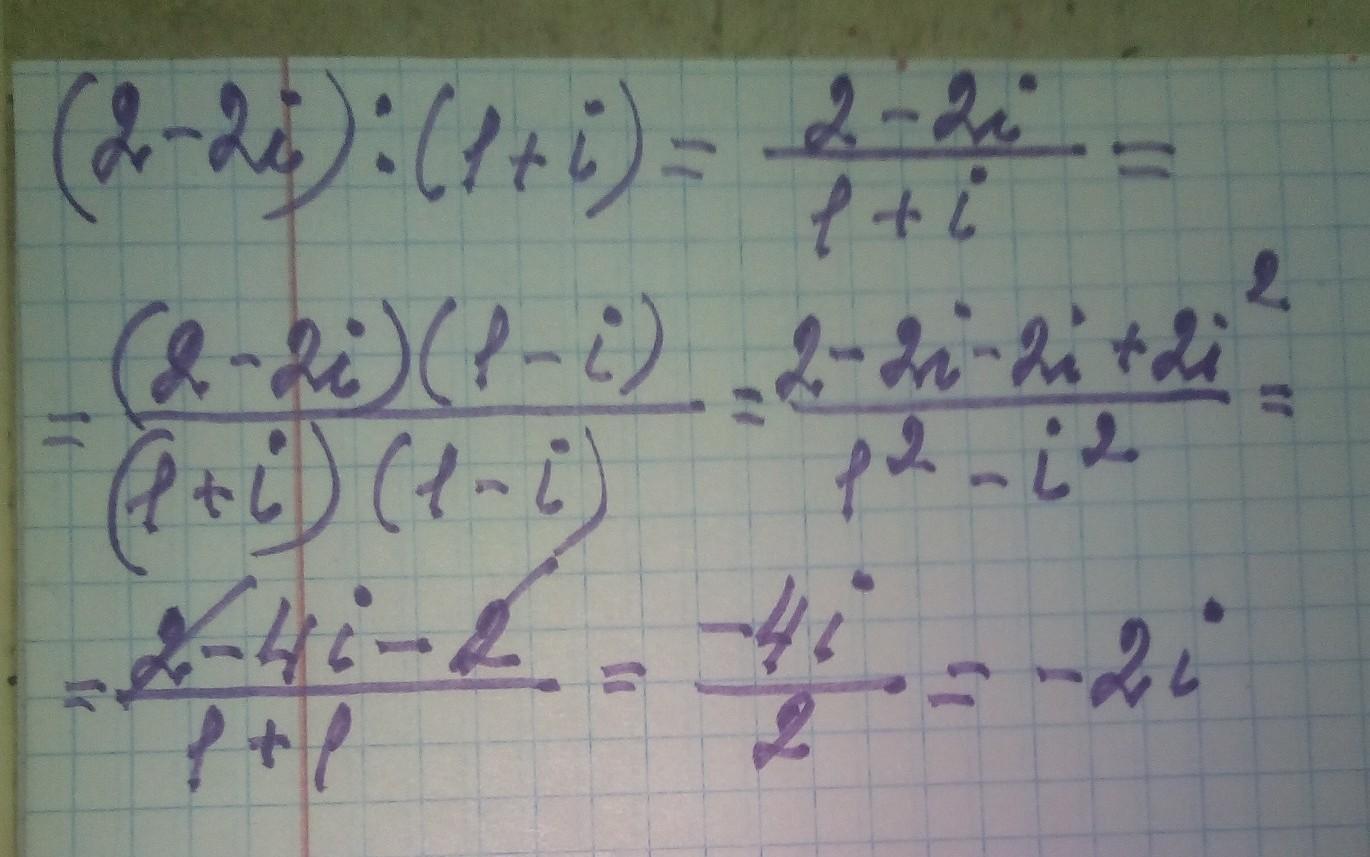 (2-2i):(1+i) = \frac{2-2i}{1+i} =
= \frac{(2-2i)(1-i)}{(1+i)(1-i)} = \frac{2-2i-2i+2i^2}{1^2-i^2} =
= \frac{2-4i-2}{1+1} = \frac{-4i}{2} = -2i